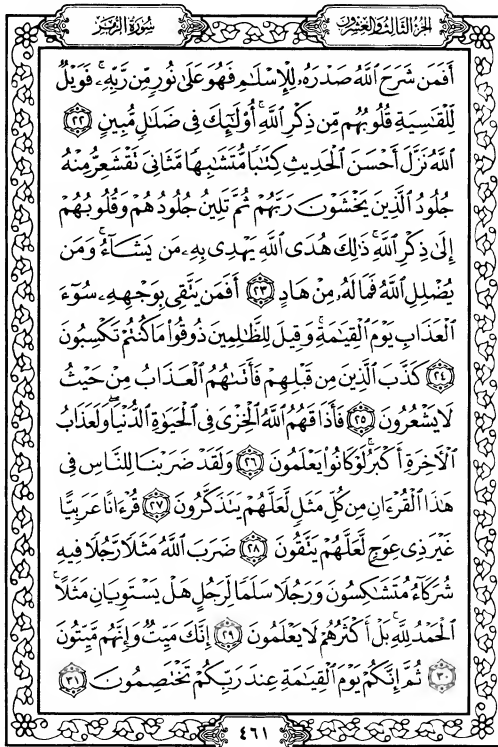 سورة الزمر الجزء الثالث والعشرون
أَفَمَن شَرَحَ ٱللَّهُ صَدْرَهُۥ لِلْإِسْلَٰمِ فَهُوَ عَلَىٰ نُورٍ مِّن رَّبِّهِۦ ۚ فَوَيْلٌ
لِّلْقَٰسِيَةِ قُلُوبُهُم مِّن ذِكْرِ ٱللَّهِ ۚ أُو۟لَٰٓئِكَ فِى ضَلَٰلٍ مُّبِينٍ ٢٢
ٱللَّهُ نَزَّلَ أَحْسَنَ ٱلْحَدِيثِ كِتَٰبًا مُّتَشَٰبِهًا مَّثَانِىَ تَقْشَعِرُّ مِنْهُ
جُلُودُ ٱلَّذِينَ يَخْشَوْنَ رَبَّهُمْ ثُمَّ تَلِينُ جُلُودُهُمْ وَقُلُوبُهُمْ
إِلَىٰ ذِكْرِ ٱللَّهِ ۚ ذَٰلِكَ هُدَى ٱللَّهِ يَهْدِى بِهِۦ مَن يَشَآءُ ۚ وَمَن
يُضْلِلِ ٱللَّهُ فَمَا لَهُۥ مِنْ هَادٍ ٢٣ أَفَمَن يَتَّقِى بِوَجْهِهِۦ سُوٓءَ
ٱلْعَذَابِ يَوْمَ ٱلْقِيَٰمَةِ ۚ وَقِيلَ لِلظَّٰلِمِينَ ذُوقُوا۟ مَا كُنتُمْ تَكْسِبُونَ
٢٤ كَذَّبَ ٱلَّذِينَ مِن قَبْلِهِمْ فَأَتَىٰهُمُ ٱلْعَذَابُ مِنْ حَيْثُ
لَا يَشْعُرُونَ ٢٥ فَأَذَاقَهُمُ ٱللَّهُ ٱلْخِزْىَ فِى ٱلْحَيَوٰةِ ٱلدُّنْيَا ۖ وَلَعَذَابُ
ٱلْءَاخِرَةِ أَكْبَرُ ۚ لَوْ كَانُوا۟ يَعْلَمُونَ ٢٦ وَلَقَدْ ضَرَبْنَا لِلنَّاسِ فِى
هَٰذَا ٱلْقُرْءَانِ مِن كُلِّ مَثَلٍ لَّعَلَّهُمْ يَتَذَكَّرُونَ ٢٧ قُرْءَانًا عَرَبِيًّا
غَيْرَ ذِى عِوَجٍ لَّعَلَّهُمْ يَتَّقُونَ ٢٨ ضَرَبَ ٱللَّهُ مَثَلًا رَّجُلًا فِيهِ
شُرَكَآءُ مُتَشَٰكِسُونَ وَرَجُلًا سَلَمًا لِّرَجُلٍ هَلْ يَسْتَوِيَانِ مَثَلًا ۚ
ٱلْحَمْدُ لِلَّهِ ۚ بَلْ أَكْثَرُهُمْ لَا يَعْلَمُونَ ٢٩ إِنَّكَ مَيِّتٌ وَإِنَّهُم مَّيِّتُونَ
٣٠ ثُمَّ إِنَّكُمْ يَوْمَ ٱلْقِيَٰمَةِ عِندَ رَبِّكُمْ تَخْتَصِمُونَ ٣١
٤٦١